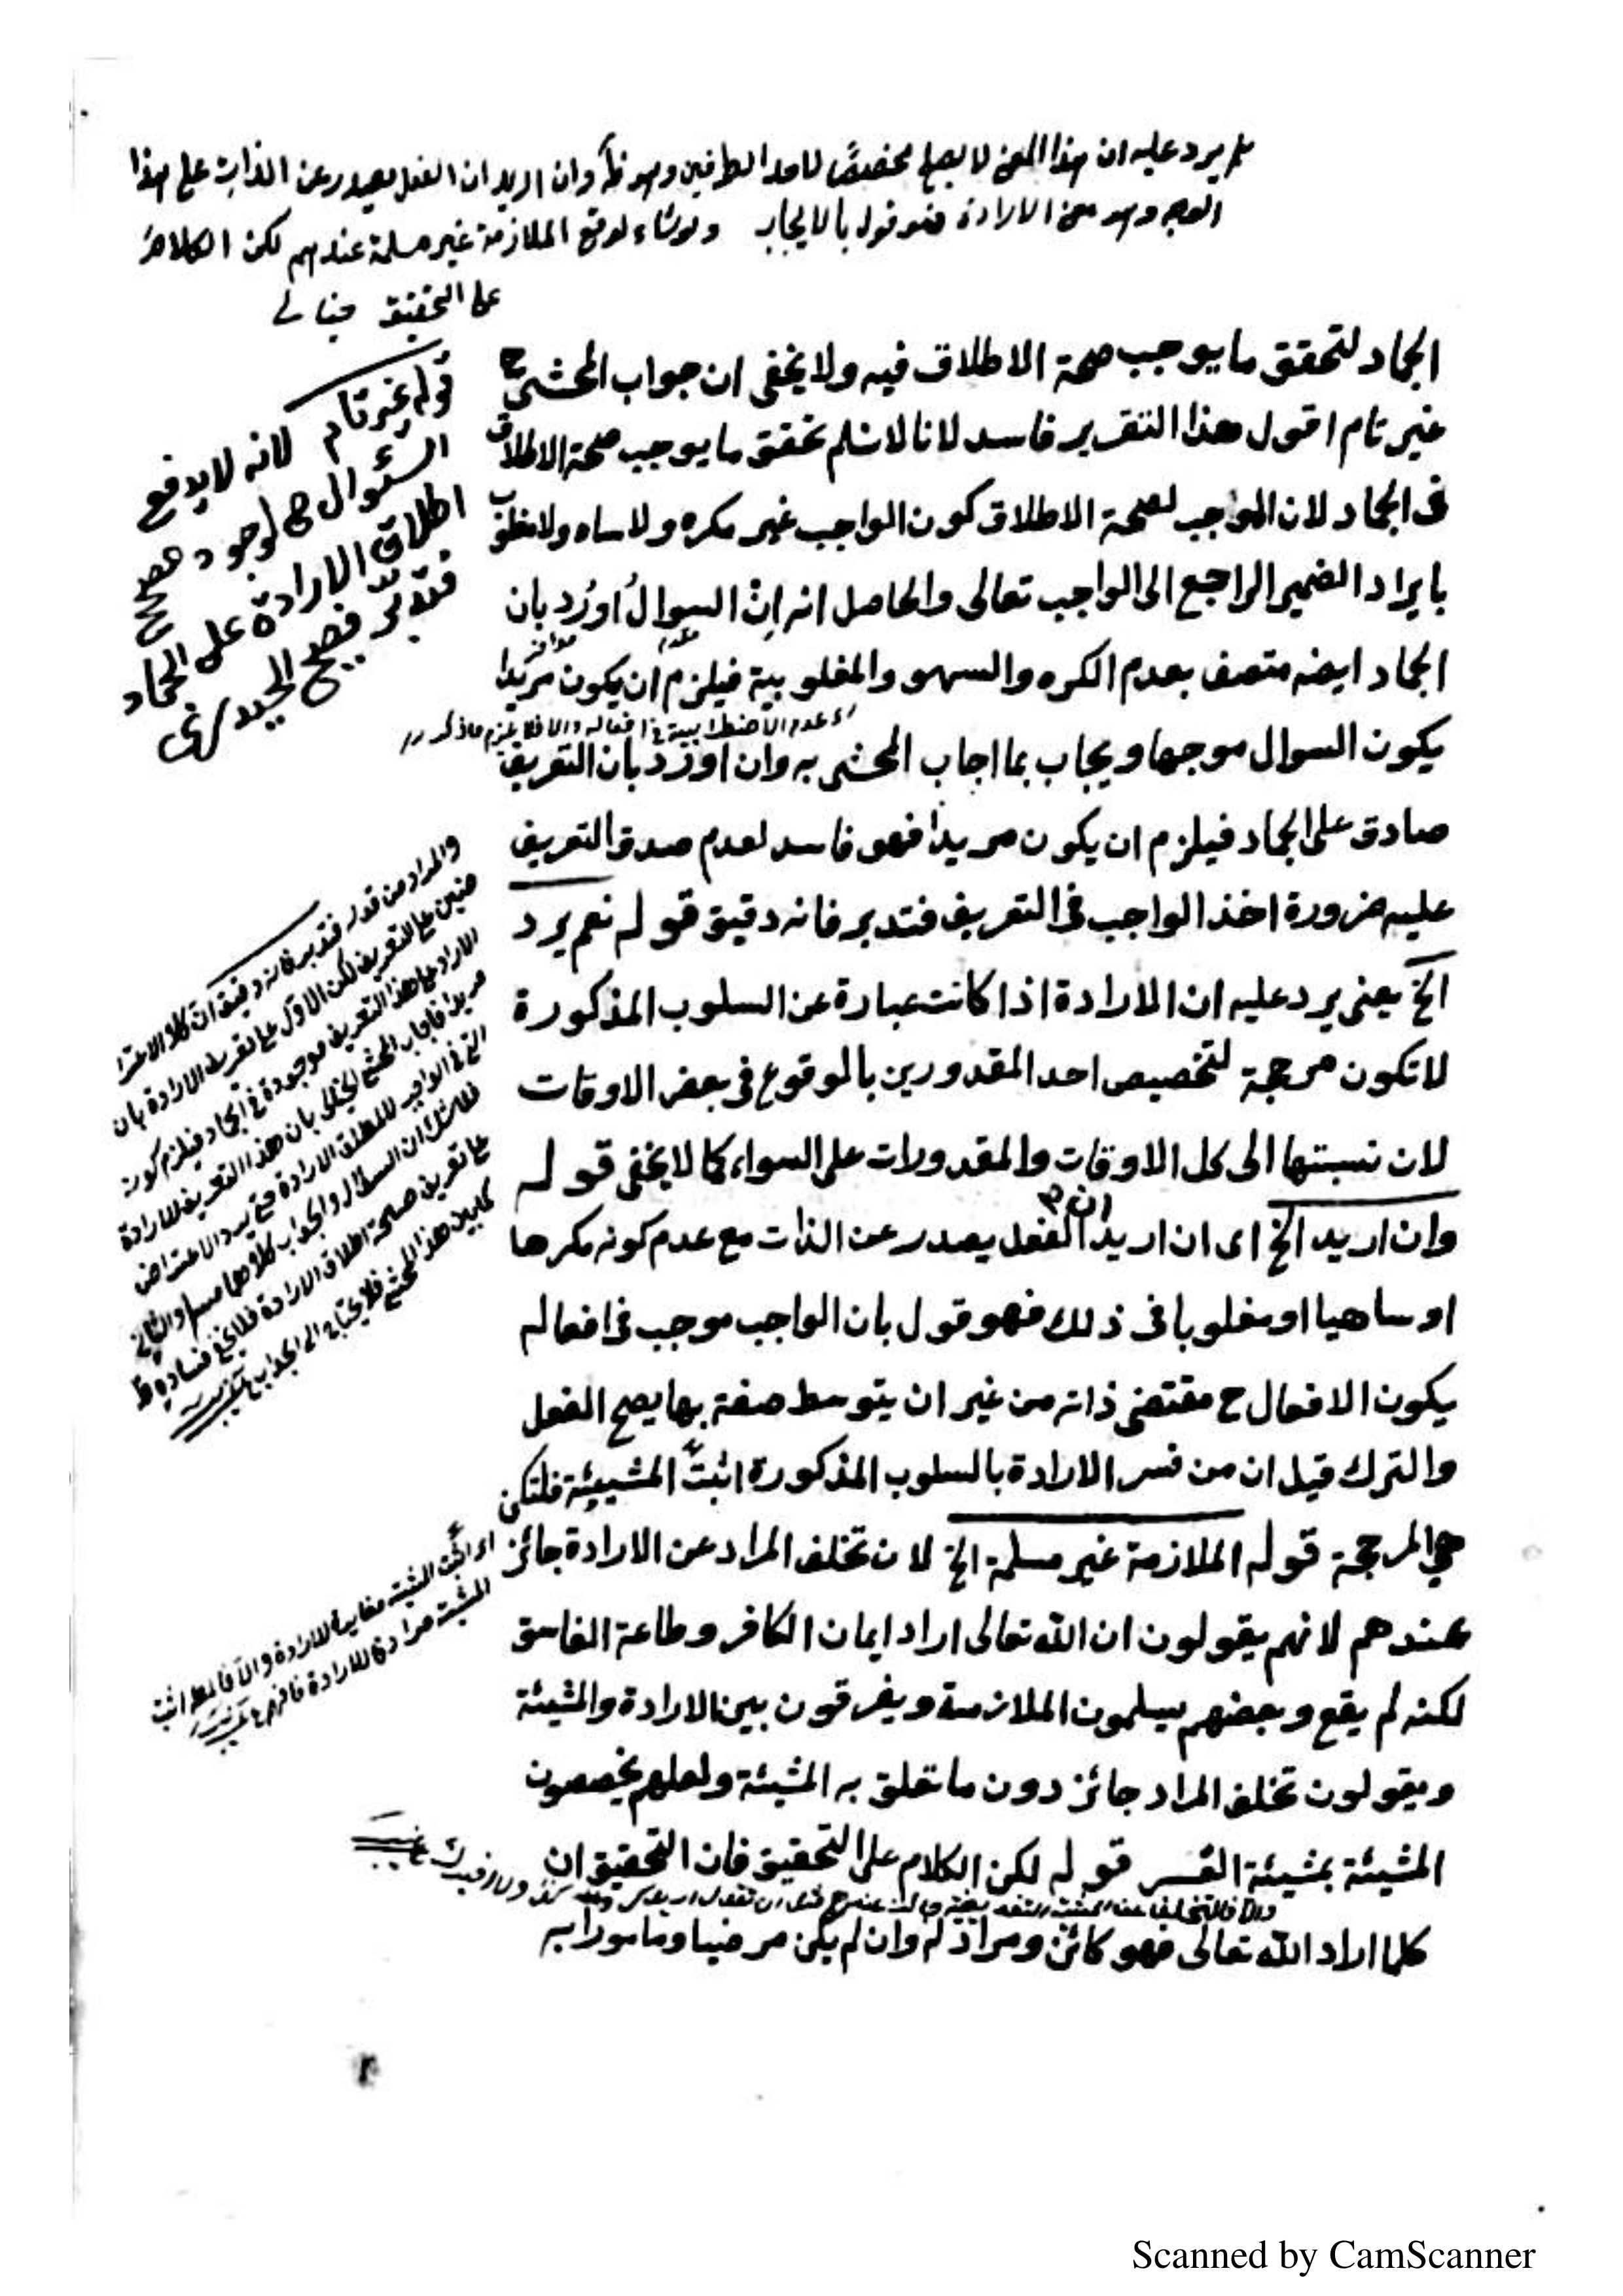 نعم يرد عليه ان هذا المعنى لا يصلح مخصصًا لاحد الطرفين وهو ظ وان اريد ان الفعل يصدر عن الذات على هذا
الوجه وهو معنى الارادة فهو قول بالايجاب ولو شاء لوقع الملازمة غير مسلمة عندهم لكن الكلام
على التحقيق خيالى
الجماد لتحقق ما يوجب صحة الاطلاق فيه ولا يخفى ان جواب المحشى ح
غير تام اقول هذا التقرير فاسد لانا لا نسلم تحقق ما يوجب صحة الاطلاق
فى الجماد لان الموجب لصحة الاطلاق كون الواجب غير مكره ولا ساه ولا مغلوب
بايراد الضمير الراجع الى الواجب تعالى والحاصل انه اِنْ السوالُ اورُد بان
الجماد ايضه متصف بعدم الكره والسهو والمغلوبية فيلزم ان يكون مريدا
اى عدم الاضطرابية فى افعاله والا فلا يلزم ما ذكر
يكون السوال موجها ويجاب بما اجاب المحشى به وان اورد بان التعريف
صادق على الجماد فيلزم ان يكون مريدا فهو فاسد لعدم صدق التعريف
عليه ضرورة اخذ الواجب فى التعريف فتدبر فانه دقيق قوله نعم يرد
الخ يعنى يرد عليه ان الارادة اذا كانت عبارة عن السلوب المذكورة
لا تكون مرجحة لتخصيص احد المقدورين بالوقوع فى بعض الاوقات
لان نسبتها الى كل الاوقات والمقدورات على السواء كما لا يخفى قوله
وان اريد الخ اى ان اريد ان الفعل يصدر عن الذات مع عدم كونه مكرها
او ساهيا او مغلوبا فى ذلك فهو قول بان الواجب موجب فى افعاله
يكون الافعال ح مقتضى ذاته من غير ان يتوسط صفة بها يصح الفعل
والترك قيل ان من فسر الارادة بالسلوب المذكورة اثبت المشيئة فلتكن
هى المرجحة قوله الملازمة غير مسلمة الخ لان تخلف المراد عن الارادة جائز
عندهم لانهم يقولون ان الله تعالى اراد ايمان الكافر وطاعة الفاسق
لكنه لم يقع وبعضهم يسلمون الملازمة ويفرقون بين الارادة والمشيئة
ويقولون تخلف المراد جائز دون ما تعلق به المشيئة ولعلهم يخصصون
المشيئة بمشيئة القسر قوله لكن الكلام على التحقيق فان التحقيق ان
كلما اراد الله تعالى فهو كائن ومراد له وان لم يكن مرضيا ومامورا به
قوله غير تام لانه لا يدفع
السئوال لوجود
اطلاق الارادة على الجماد
فتدبر
والمراد من قوله فتدبر فانه دقيق ان كلا الاعترا
ضين على التعريف لكن الاول على تعريف الارادة بان
الارادة على هذا التعريف موجودة فى الجماد فيلزم كونه
مريدا فاجاب المحشى الخيالى بان هذا التعريف للارادة
التى فى الواجب لا لمطلق الارادة حتى يرد الاعتراض
فلا شك ان السوال والجواب كلاهما مسلم والثانى
على تعريف صحة اطلاق الارادة فلا يخفى فساده
كما بين هذا المحشى فلا يحتاج الى الجواب
اى اثبت المشيئة مغايرة للارادة والا فالمط اثبت
المشيئة مرادفا للارادة فافهم
Scanned by CamScanner